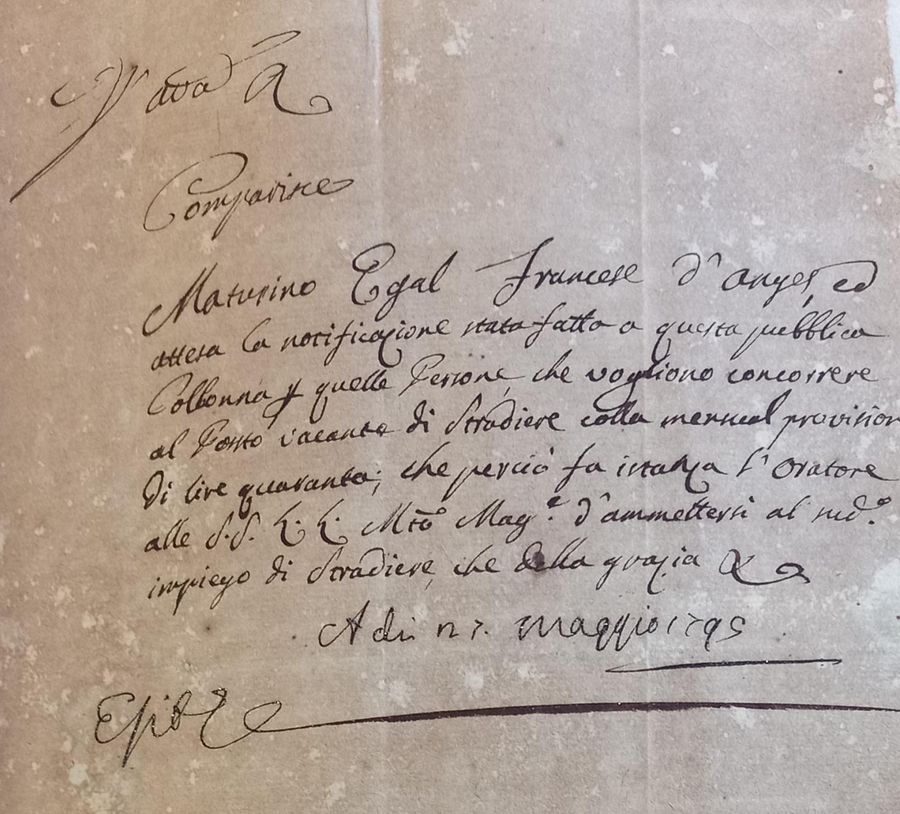 Comparisce
Maturino Egal Francese d'Anges, ed
attesa la notificazione stata fatta a questa pubblica
Collonna p quelle Persone, che vogliono concorrere
al Posto vacante di Stradiere colla mensual provision
di lire quaranta; che perciò fa istanza l'Oratore
alle S.S. L. L. Mto Mag.e d'ammettersi al sud.o
impiego di Stradiere, che della grazia &
A di maggio 1795